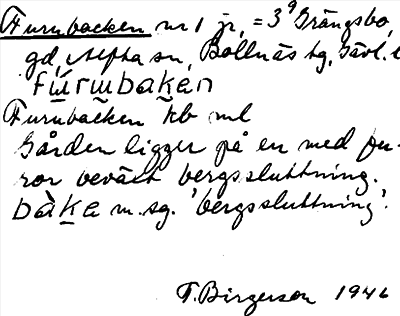 Furubacken nr 1 jr, = 3⁹ Grängsbo,
gd, Alfta sn, Bollnäs tg, Gävl. l
fúrɯbaḵen
Furubacken kb ml
Gården ligger på en med fu-
ror beväxt bergssluttning.
bàḵe m. sg. 'bergssluttning'.
F. Birgerson 1946